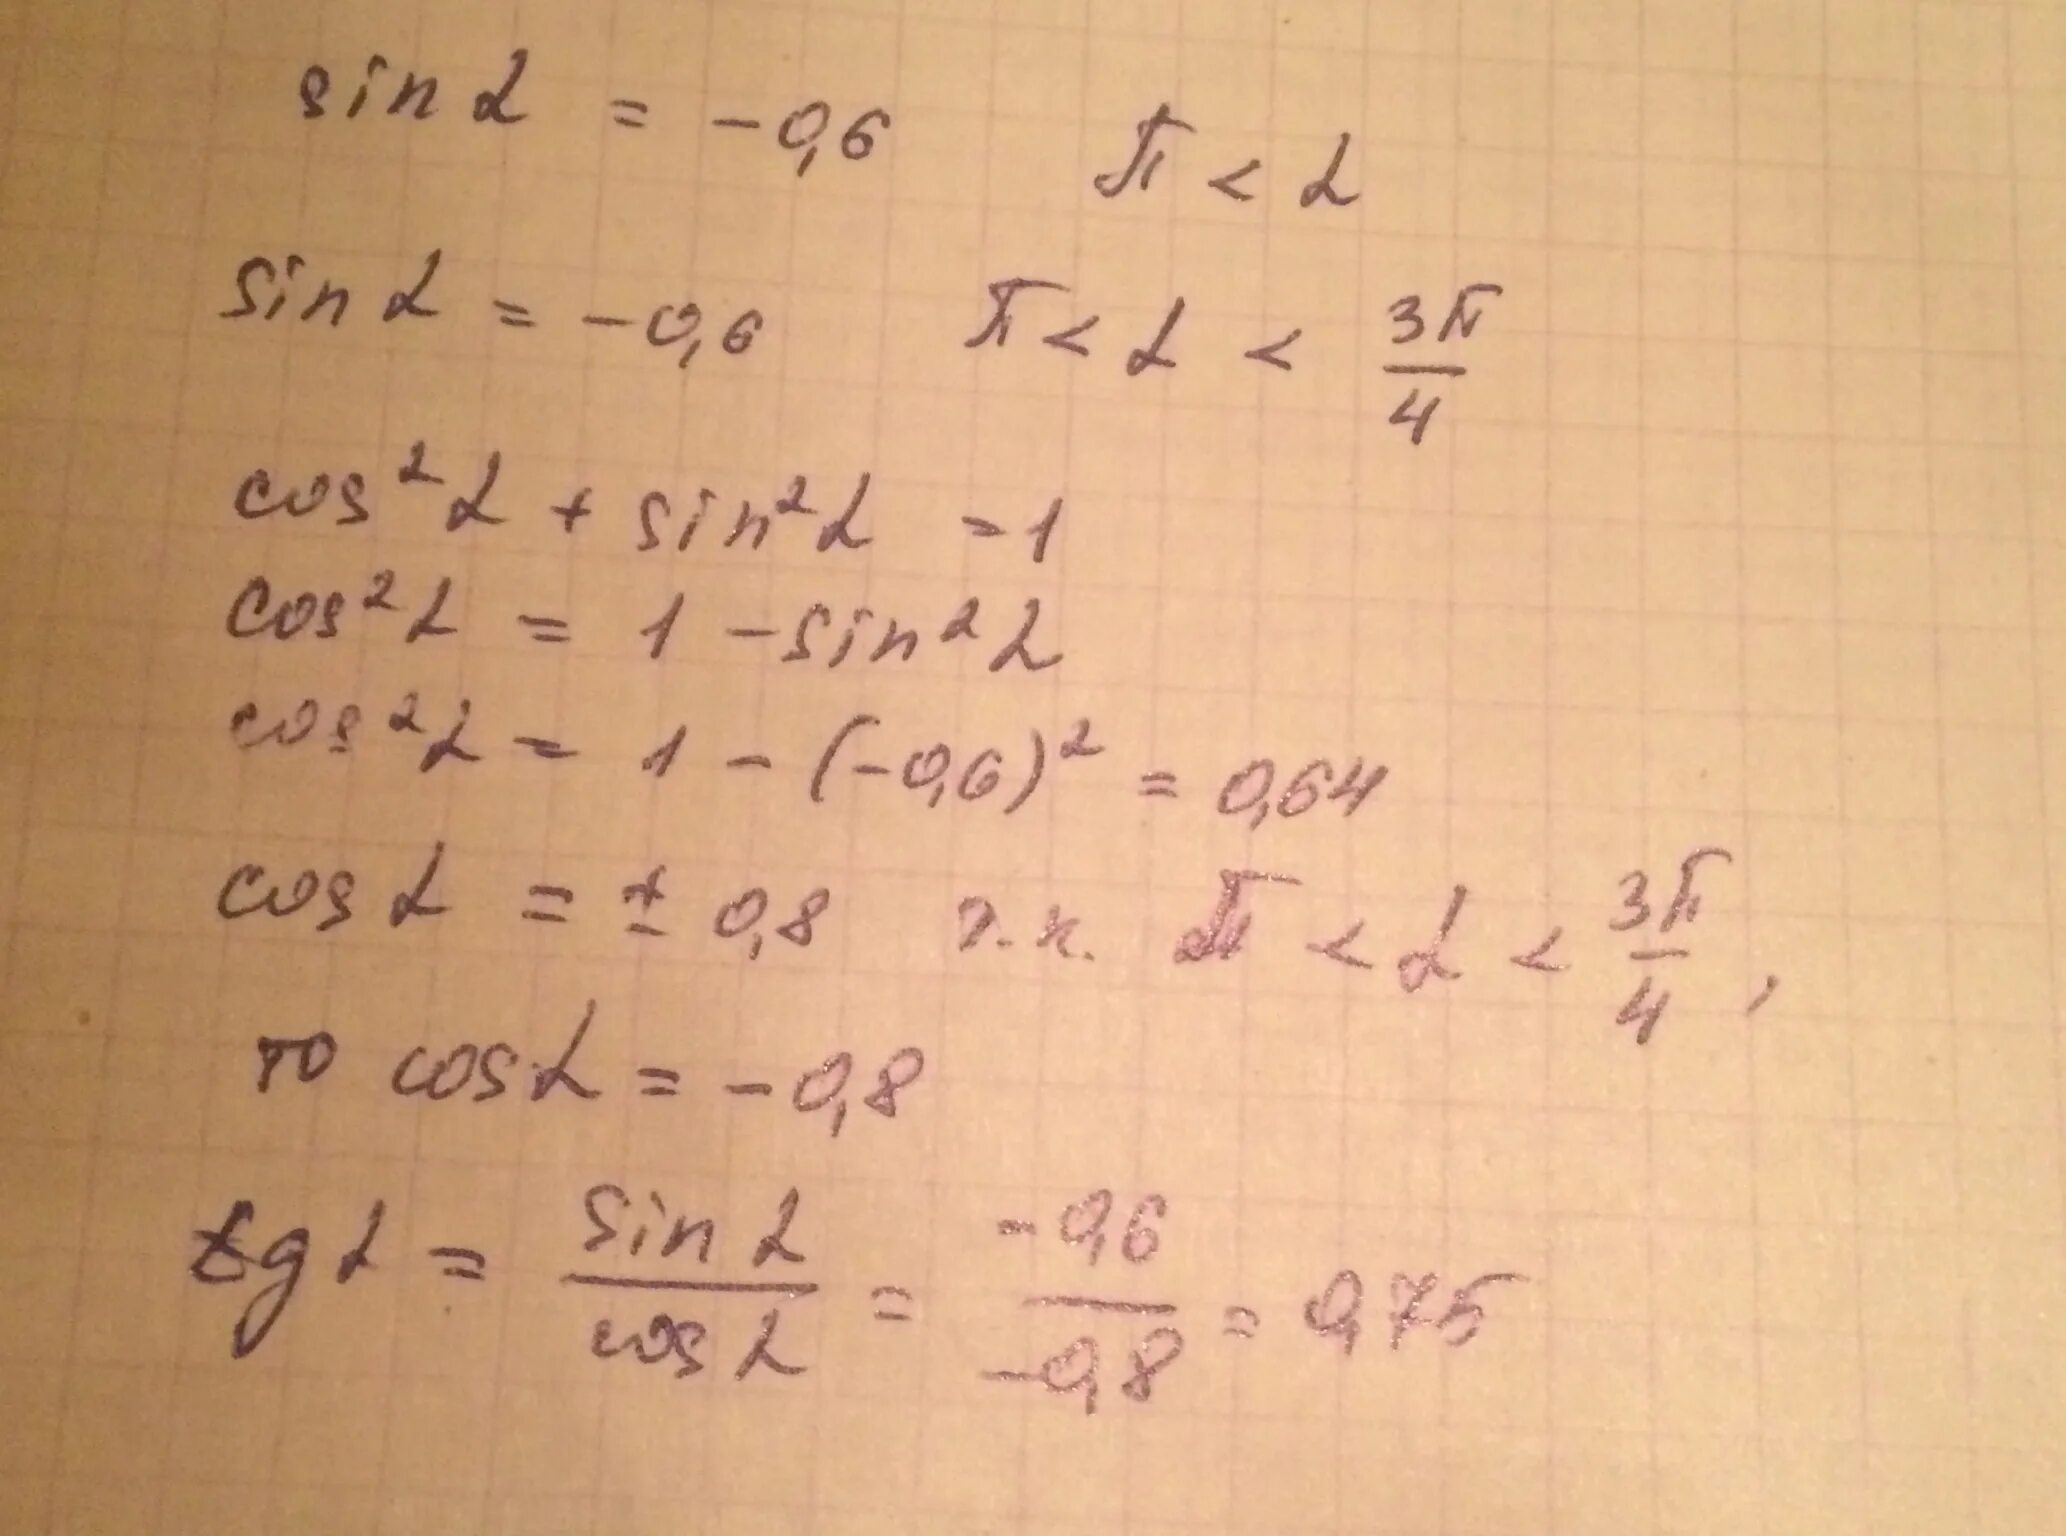 sin α = -0,6 π < α
sin α = -0,6 π < α < 3π/4
cos²α + sin²α = 1
cos²α = 1 - sin²α
cos²α = 1 - (-0,6)² = 0,64
cos α = ± 0,8 т.к. π < α < 3π/4,
то cos α = -0,8
tg α = sin α / cos α = -0,6 / -0,8 = 0,75